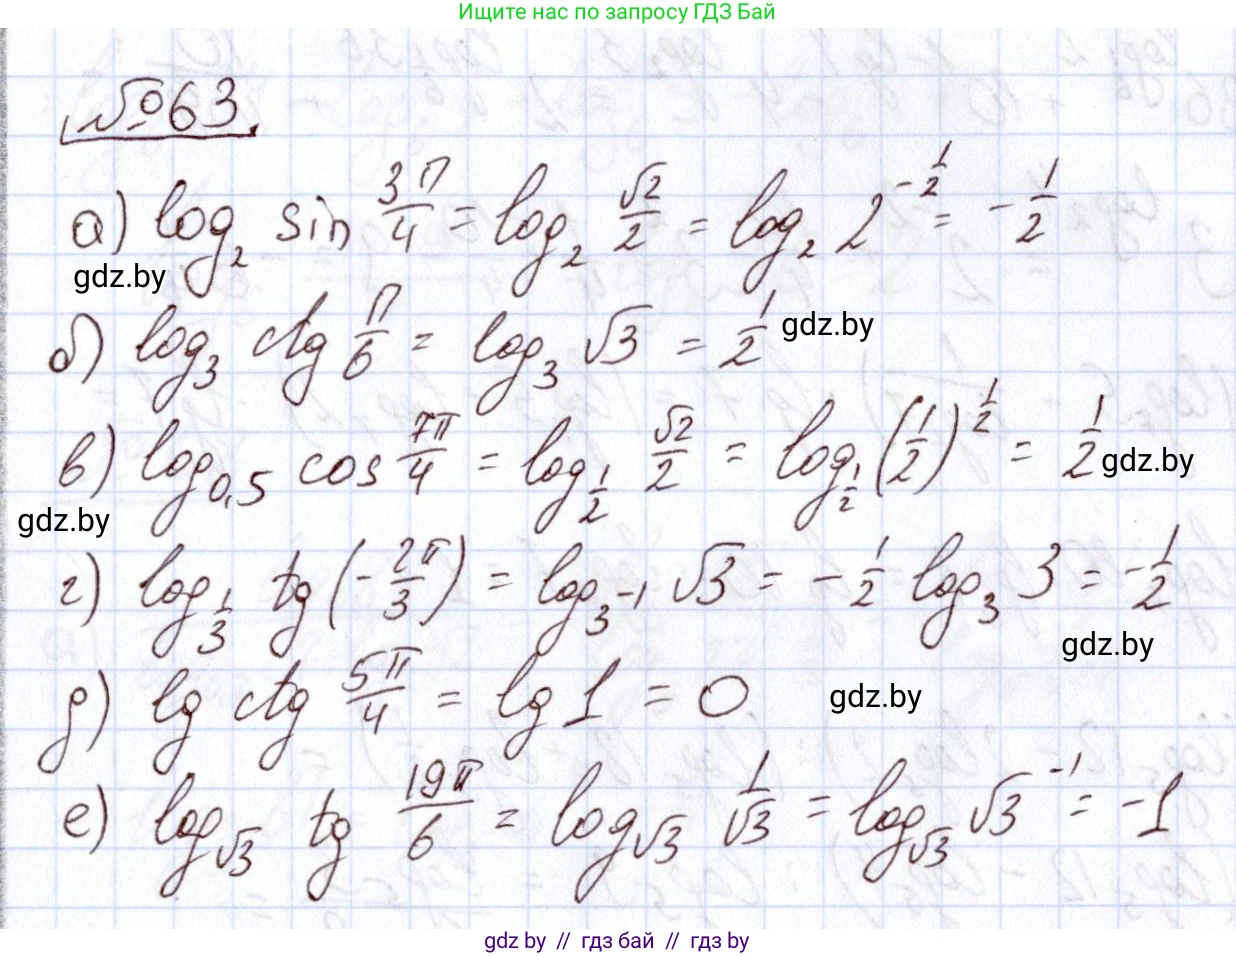 Ищите нас по запросу ГДЗ Бай
№63
а) log₂ sin 3π/4 = log₂ √2/2 = log₂ 2^(-1/2) = -1/2
gdz.by
б) log₃ ctg π/6 = log₃ √3 = 1/2 gdz.by
в) log₀,₅ cos 7π/4 = log_(1/2) √2/2 = log_(1/2) (1/2)^(1/2) = 1/2 gdz.by
gdz.by
г) log_(1/3) tg(-2π/3) = log_(3^-1) √3 = -1/2 log₃ 3 = -1/2
gdz.by
д) lg ctg 5π/4 = lg 1 = 0 gdz.by
е) log_√3 tg 19π/6 = log_√3 1/√3 = log_√3 √3^(-1) = -1
gdz by // гдз бай // гдз by